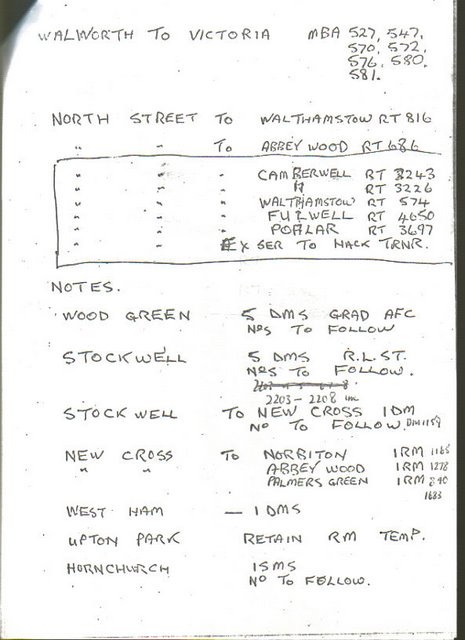 WALWORTH TO VICTORIA MBA 527, 547,
570, 572,
576, 580,
581.
NORTH STREET TO WALTHAMSTOW RT 816
" " TO ABBEY WOOD RT 686
" " " CAMBERWELL RT 3243
" " " " RT 3226
" " " WALTHAMSTOW RT 574
" " " FULWELL RT 4650
" " " POPLAR RT 3697
" " " EX SER TO HACK TRNR.
NOTES.
WOOD GREEN 5 DMS GRAD AFC
NOS TO FOLLOW
STOCKWELL 5 DMS R.L.ST.
NOS TO FOLLOW.
2203 - 2208 inc
STOCKWELL TO NEW CROSS 1DM
NO TO FOLLOW. DM1159
NEW CROSS TO NORBITON 1RM 1165
" " ABBEY WOOD 1RM 1278
PALMERS GREEN 1RM 840
1683
WEST HAM — 1 DMS
UPTON PARK RETAIN RM TEMP.
HORNCHURCH 1SMS
NO TO FOLLOW.